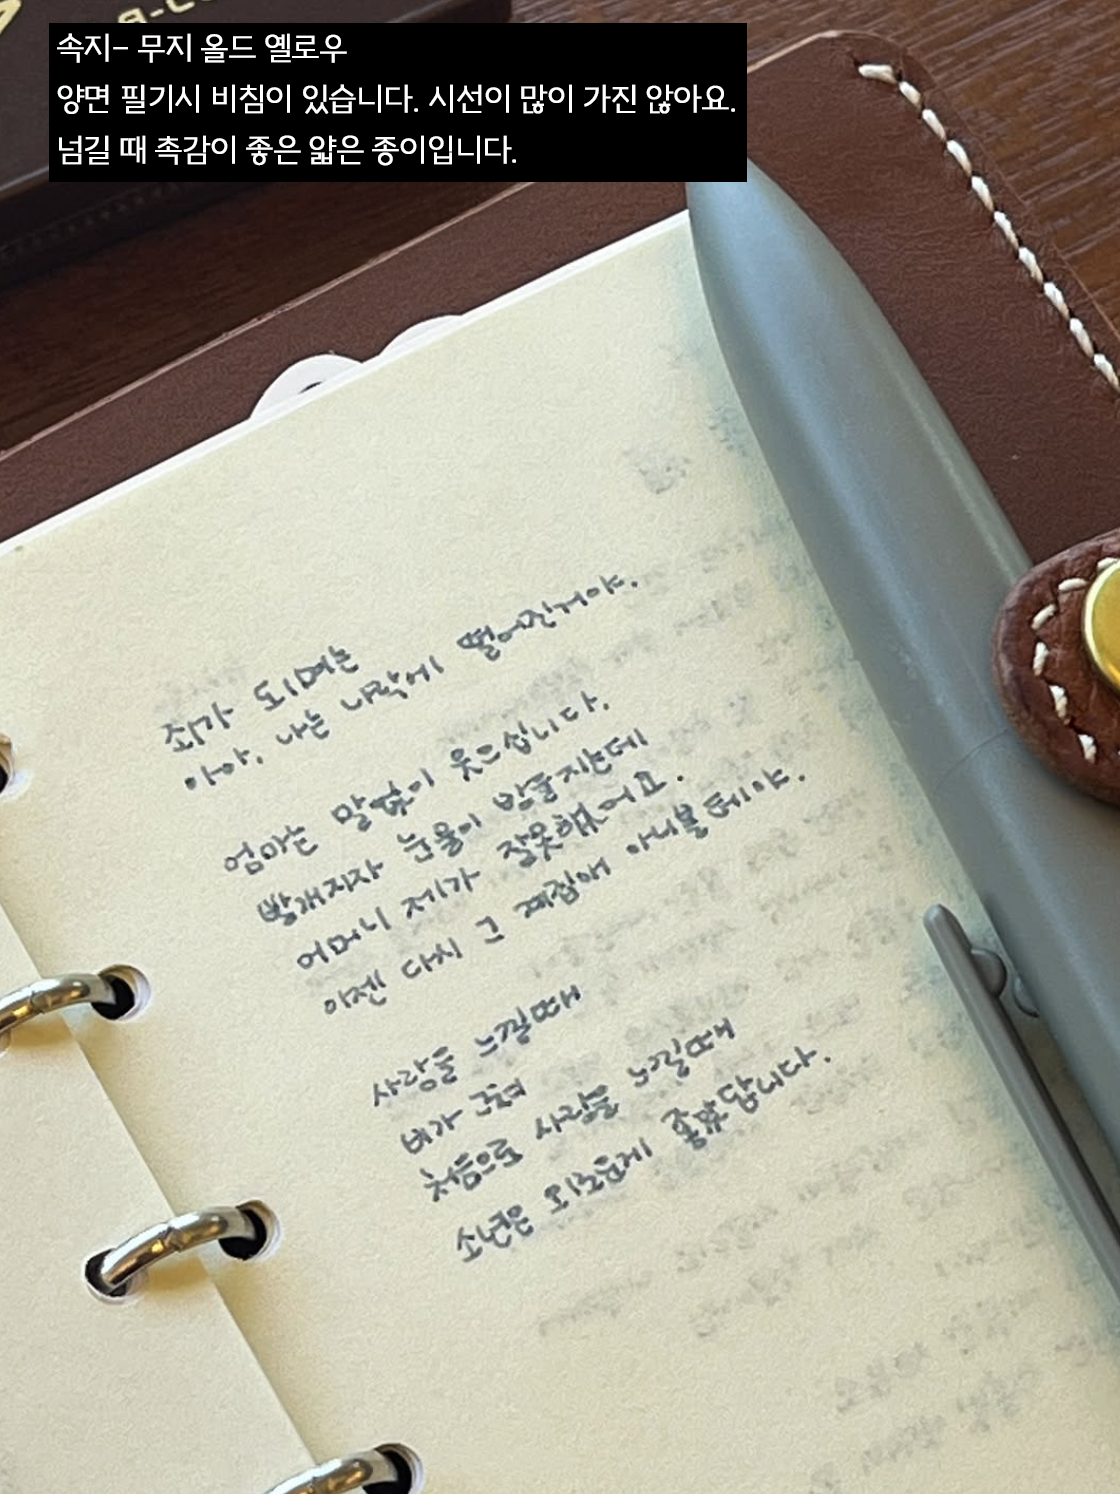 속지- 무지 올드 옐로우
양면 필기시 비침이 있습니다. 시선이 많이 가진 않아요.
넘길 때 촉감이 좋은 얇은 종이입니다.
죄가 되며는
아아, 나는 나락에 떨어진거야.
엄마는 말없이 웃으십니다.
빨개지자 눈물이 방울지는데
어머니 제가 잘못했어요.
이젠 다시 그 계집애 아니볼테야.
사랑을 느낄때
비가
처음으로 사랑을 느낄때
소년은 외로운게 좋았답니다.